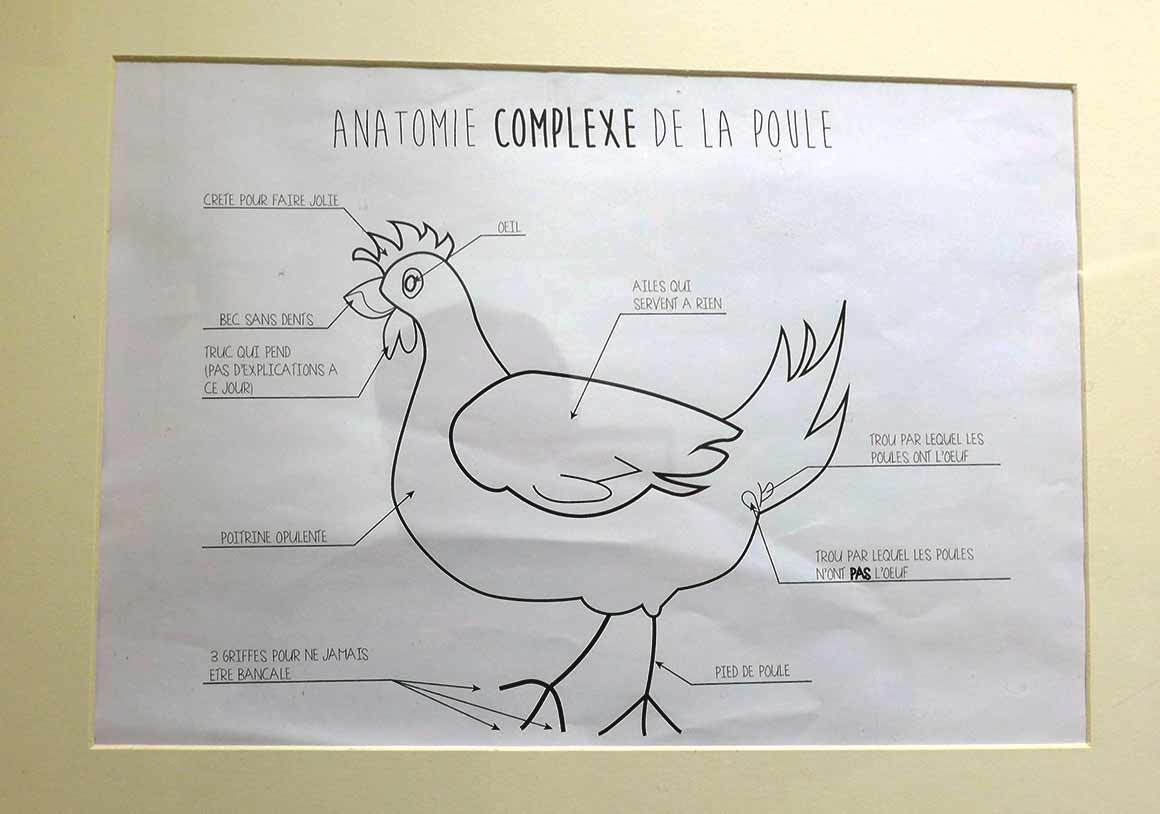 ANATOMIE COMPLEXE DE LA POULE
CRETE POUR FAIRE JOLIE
OEIL
AILES QUI
SERVENT A RIEN
BEC SANS DENTS
TRUC QUI PEND
(PAS D'EXPLICATIONS A
CE JOUR)
TROU PAR LEQUEL LES
POULES ONT L'OEUF
POITRINE OPULENTE
TROU PAR LEQUEL LES POULES
N'ONT PAS L'OEUF
3 GRIFFES POUR NE JAMAIS
ETRE BANCALE
PIED DE POULE